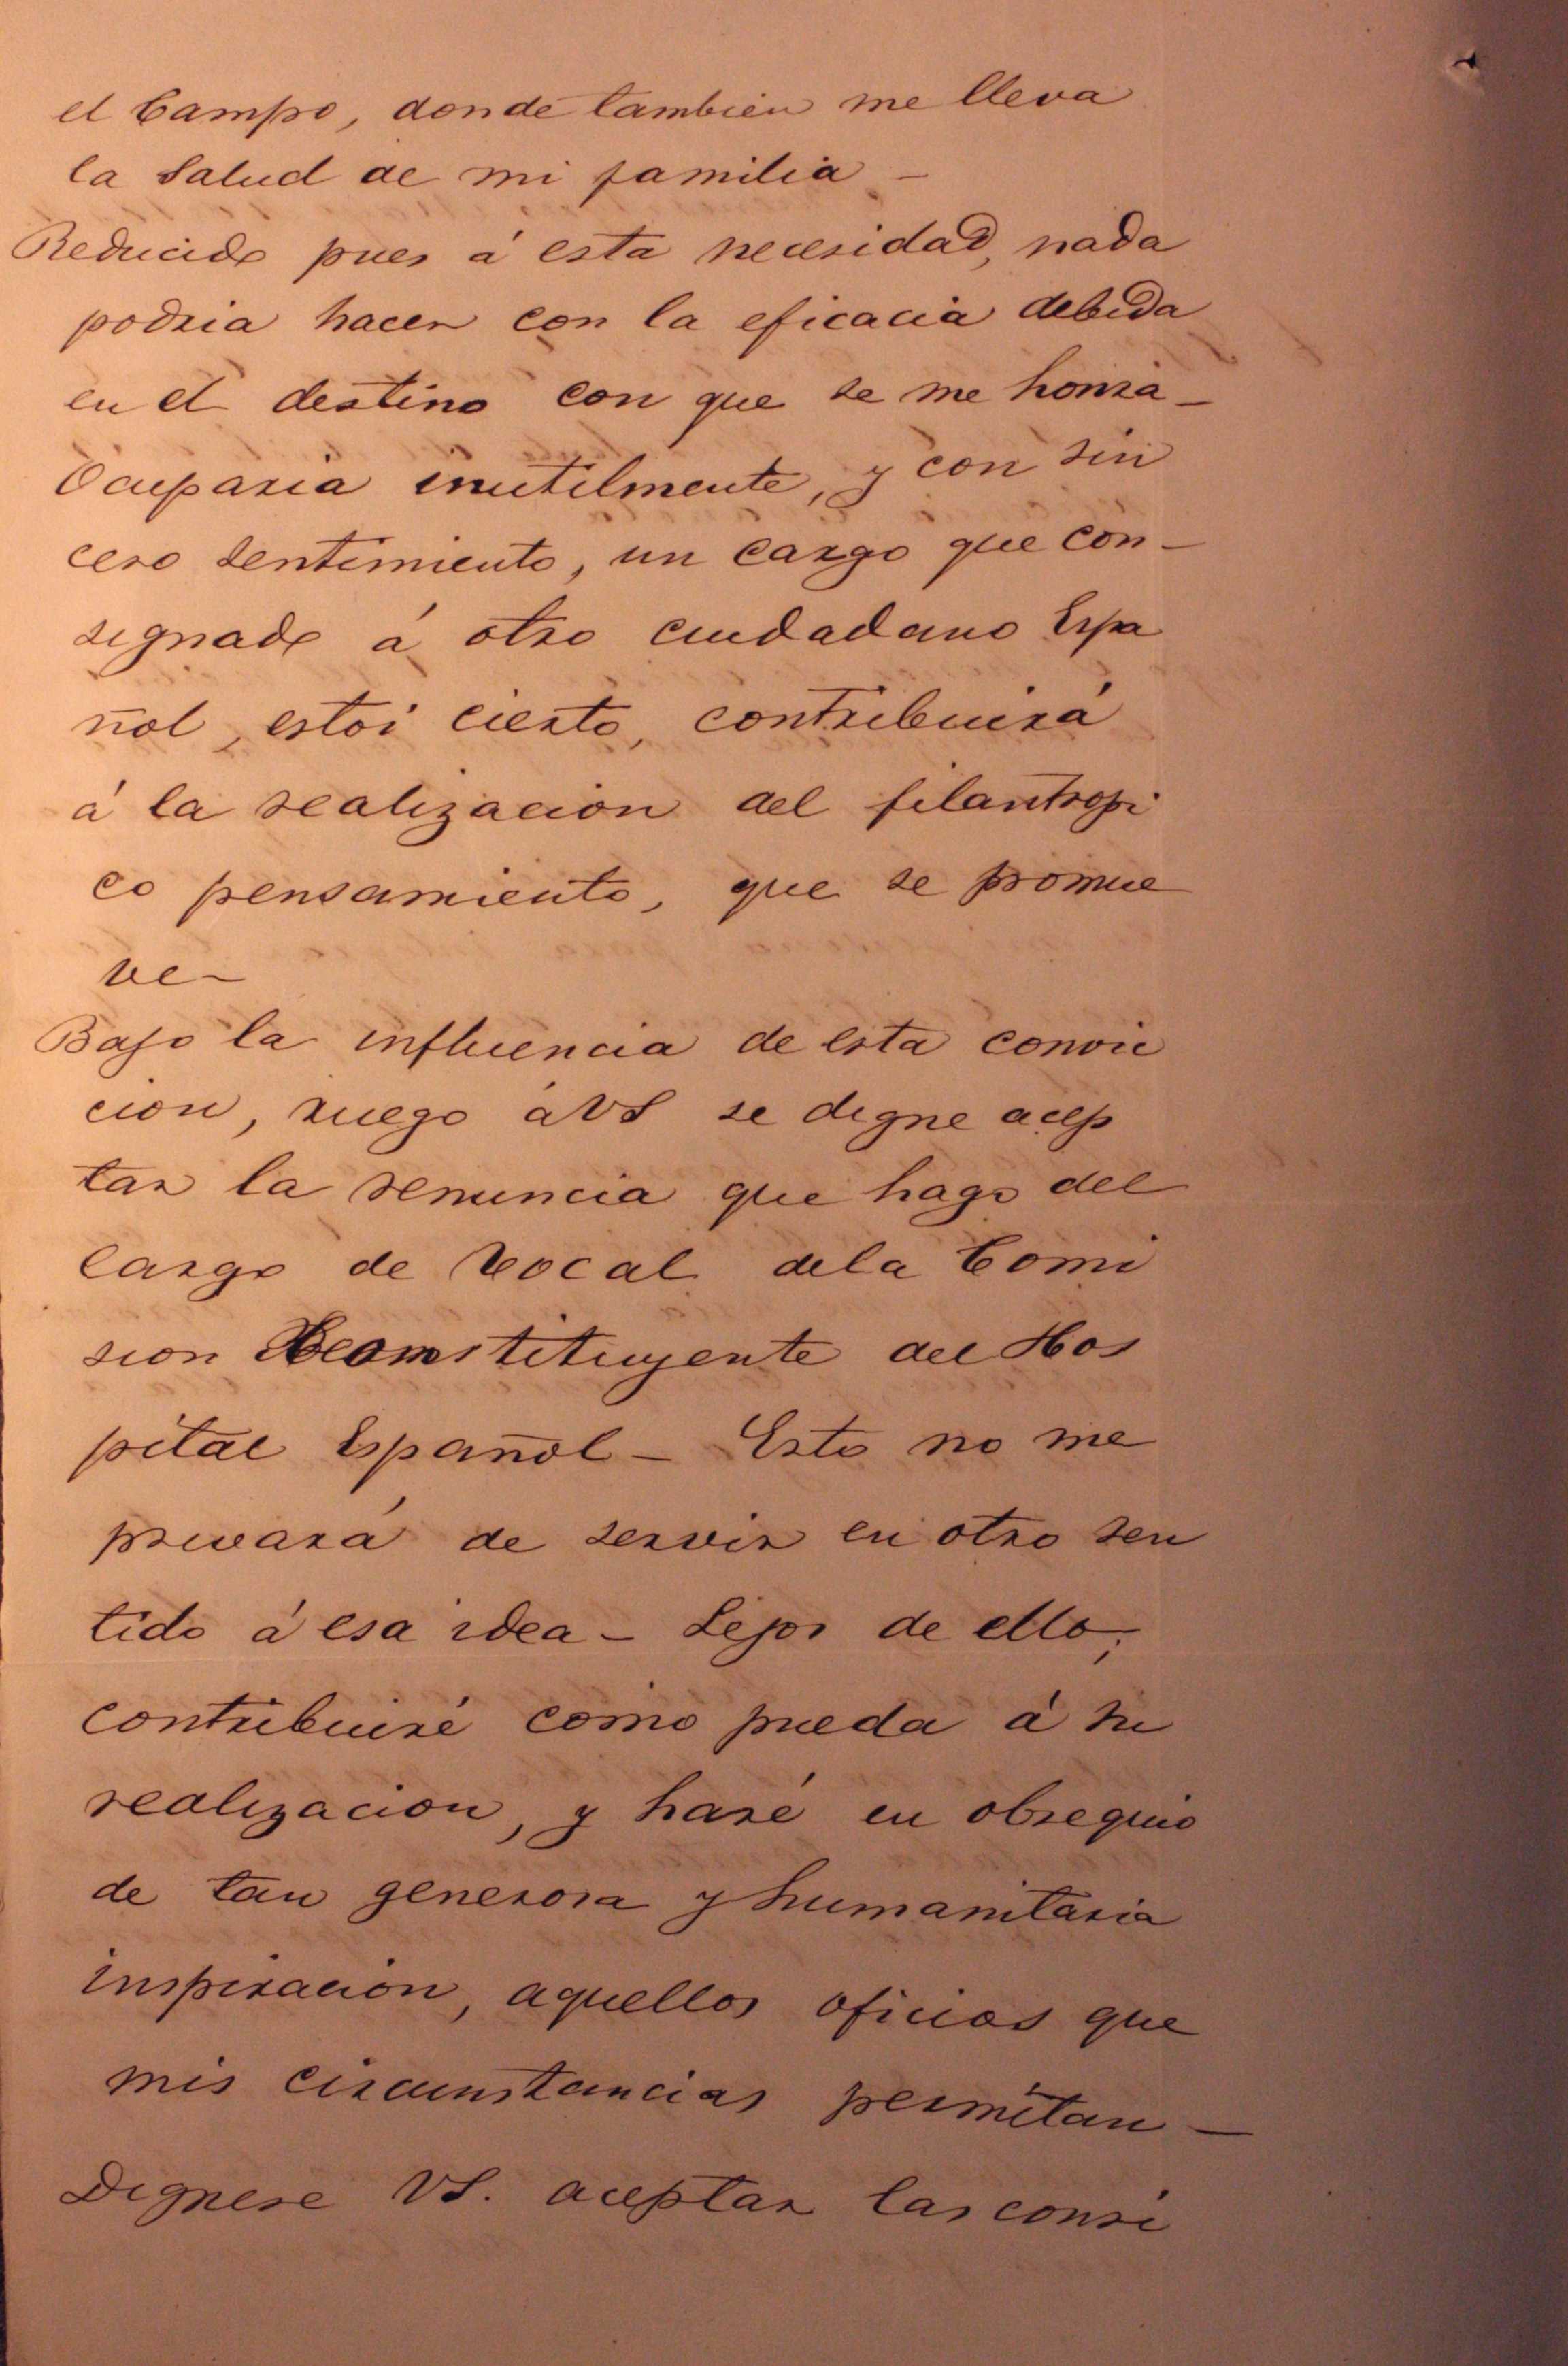 el Campo, donde tambien me lleva
la Salud de mi familia –
Reducido pues á esta necesidad, nada
podria hacer con la eficacia debida
en el destino con que se me honra –
Ocuparia inutilmente, y con sin
cero sentimiento, un cargo que con –
signado á otro ciudadano Espa
ñol, estoi cierto, contribuirá
á la realizacion del filantropi
co pensamiento, que se promue
ve –
Bajo la influencia de esta convic
cion, ruego á VS se digne acep
tar la renuncia que hago del
cargo de vocal dela Comi
sion Reconstituyente del Hos
pital Español – Esto no me
privará de servir en otro sen
tido á esa idea – Lejos de ello,
contribuiré como pueda á su
realizacion, y haré en obsequio
de tan generosa y humanitaria
inspiracion, aquellos oficios que
mis circunstancias permitan –
Dignese VS. aceptar las consi